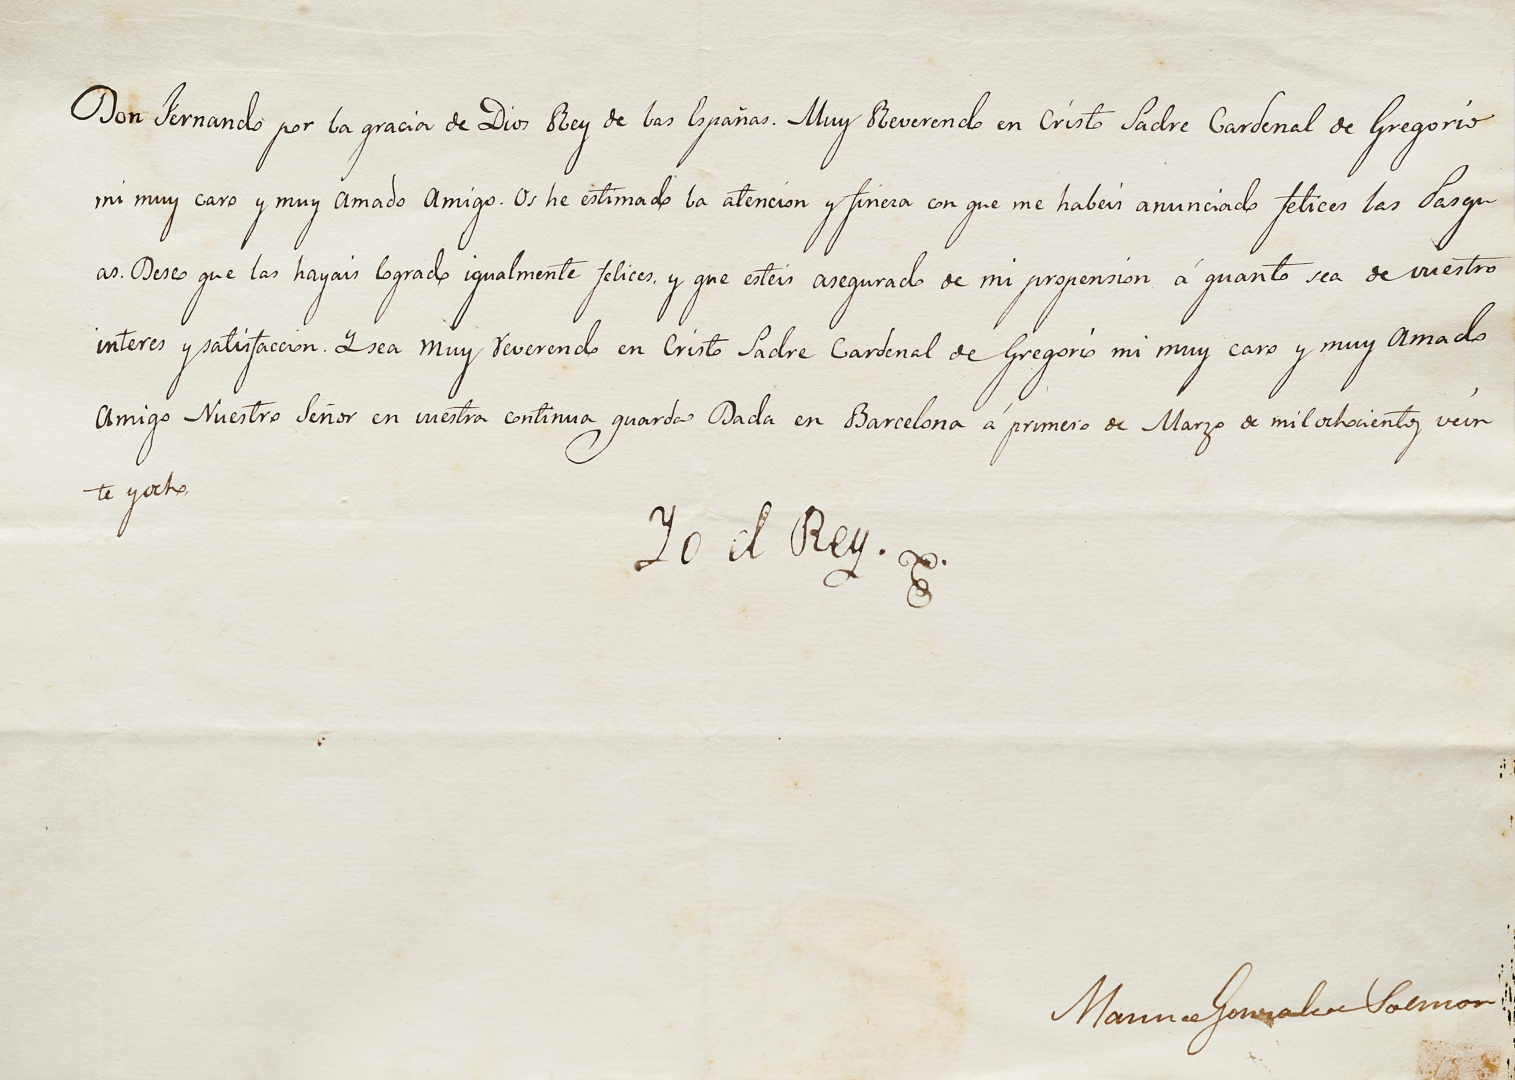 Don Fernando por la gracia de Dios Rey de las Españas. Muy Reverendo en Cristo Padre Cardenal de Gregorio
mi muy caro y muy amado amigo. Os he estimado la atencion y fineza con que me habeis anunciado felices las Pasqu
as. Deseo que las hayais logrado igualmente felices, y que esteis asegurado de mi propension á quanto sea de vuestro
interes y satisfaccion. Y sea muy reverendo en Cristo Padre Cardenal de Gregorio mi muy caro y muy amado
amigo Nuestro Señor en vuestra continua guarda Dada en Barcelona á primero de Marzo de mil ochocientos vein
te y ocho.
Yo el Rey.
Manuel Gonzalez Salmon